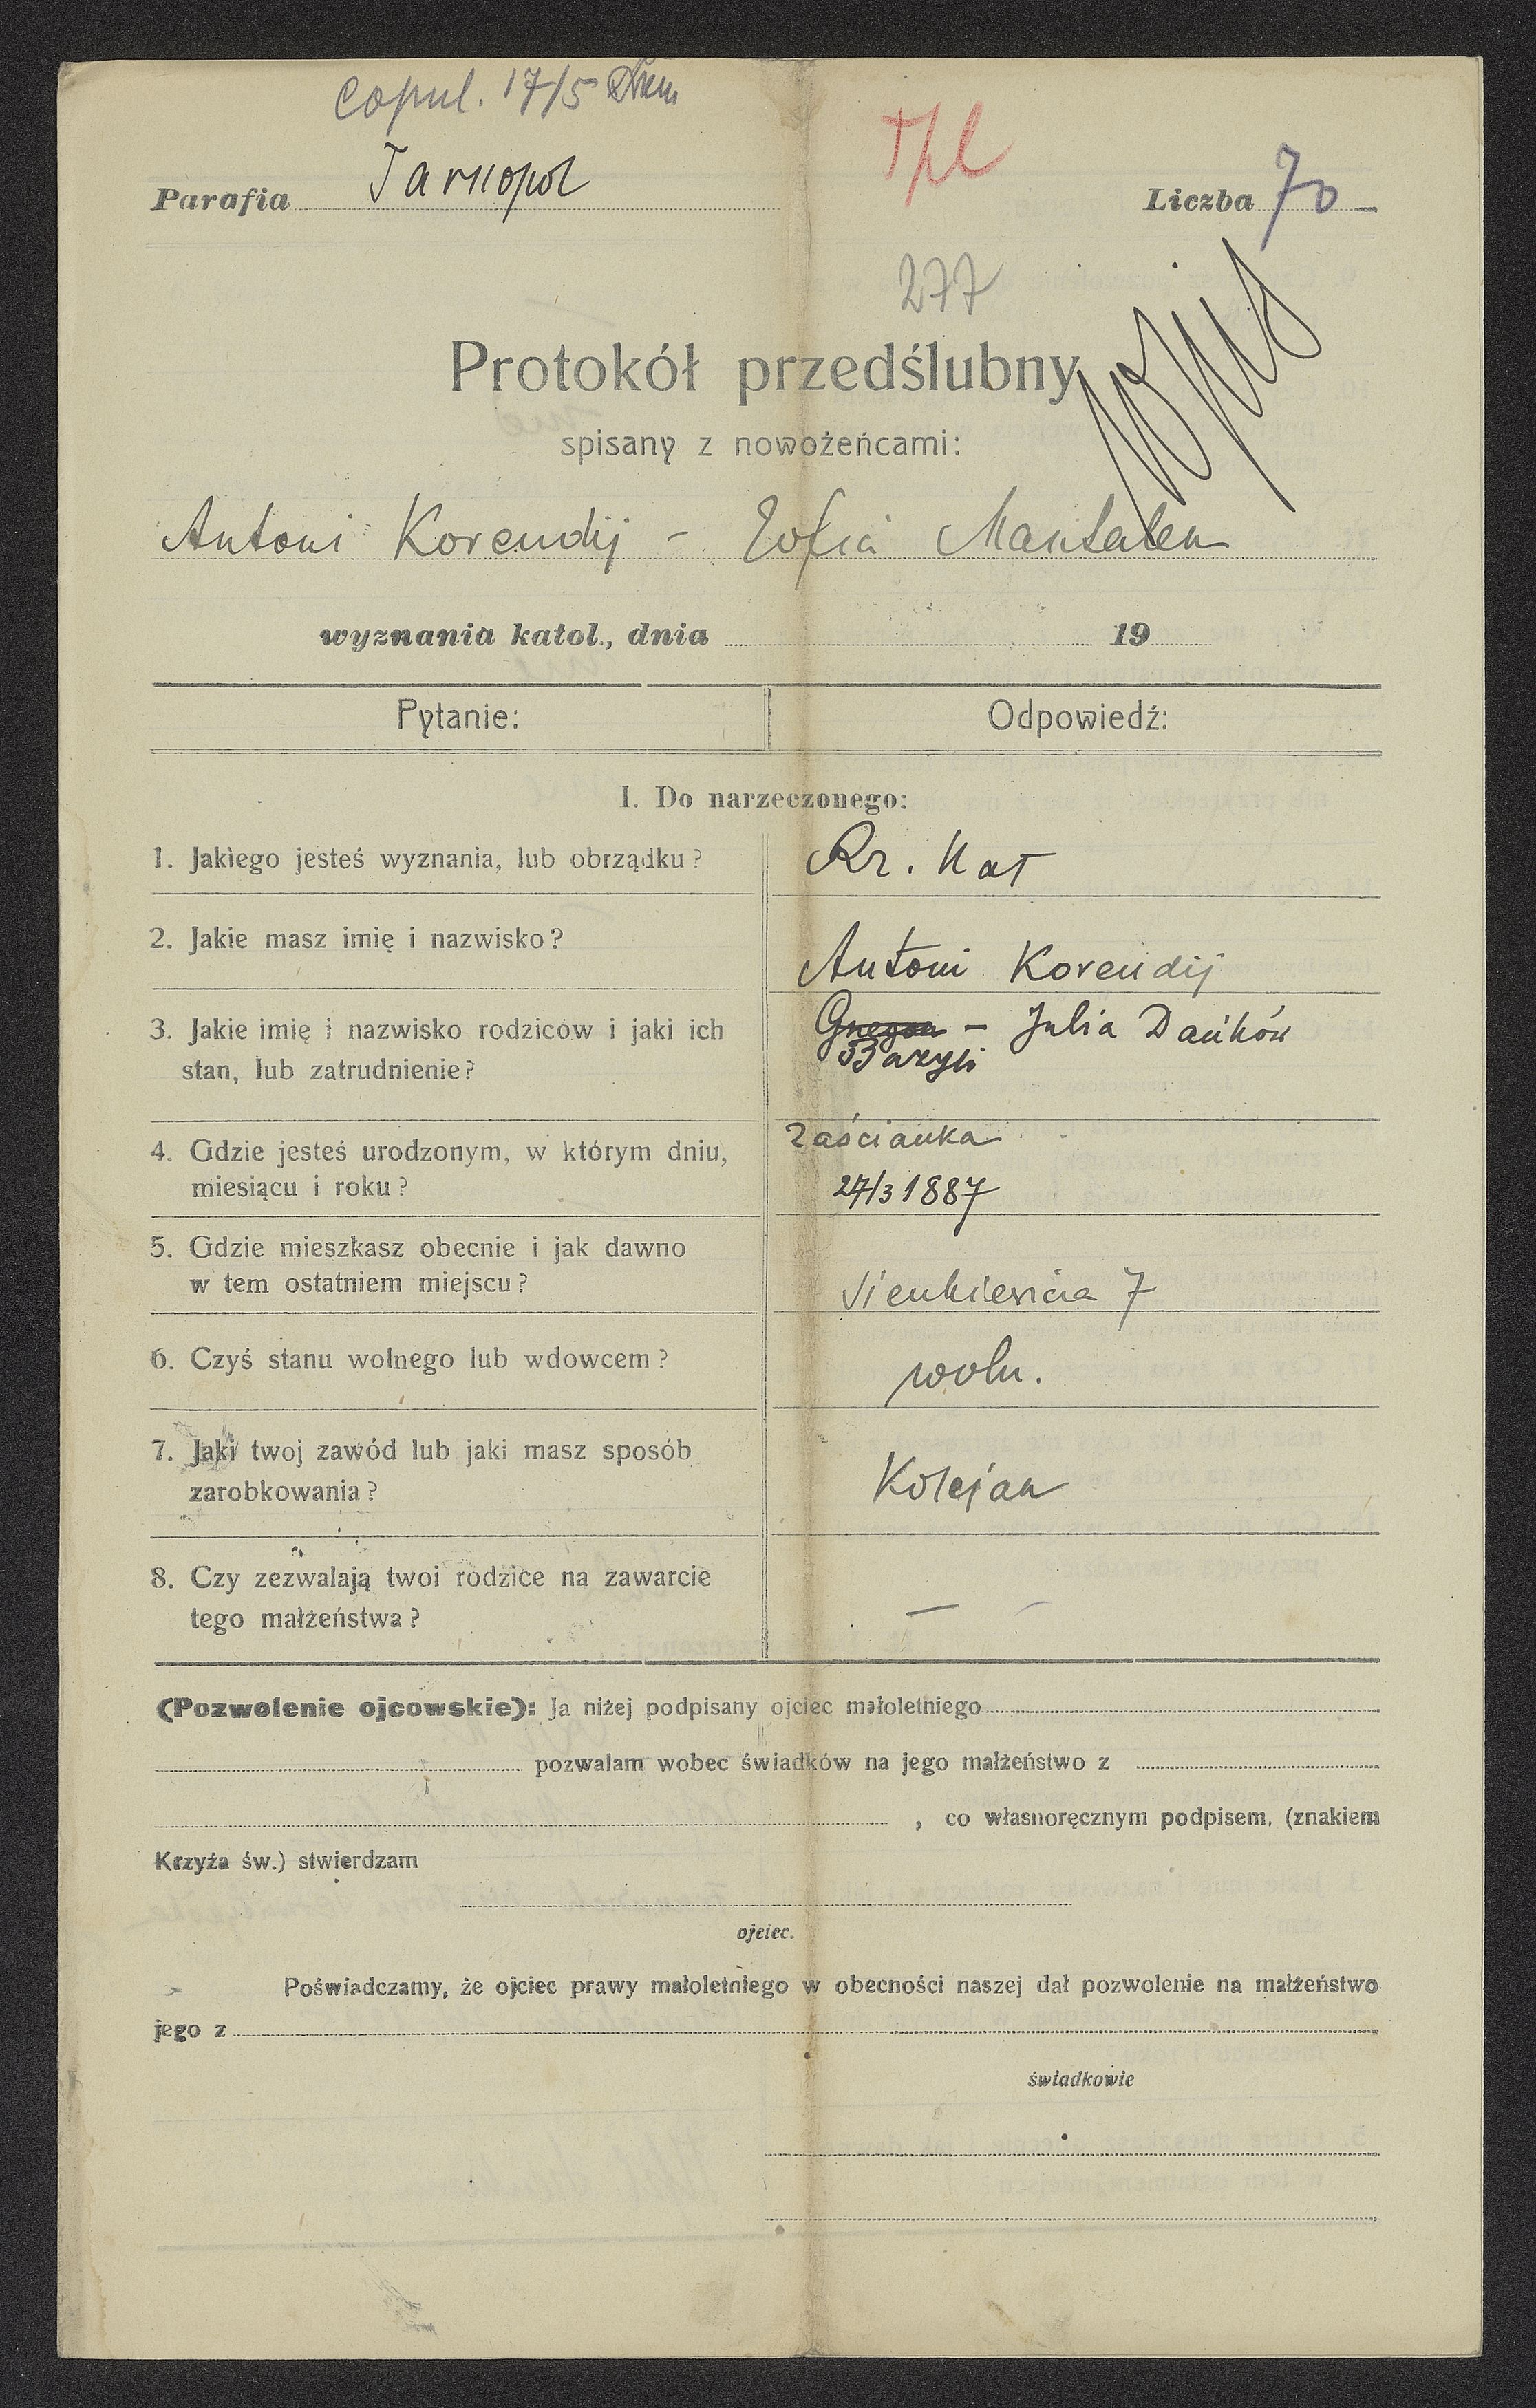 Copul. 17/5
Parafia Tarnopol
Tpl
Liczba 70
277
Protokół przedślubny
spisany z nowożeńcami:
Antoni Korendij - Zofia
wyznania katol., dnia 19
Pytanie: Odpowiedź:
I. Do narzeczonego:
1. Jakiego jesteś wyznania, lub obrządku? Rz. Kat
2. Jakie masz imię i nazwisko? Antoni Korendij
3. Jakie imię i nazwisko rodziców i jaki ich - Julia Dańków
stan, lub zatrudnienie? Bazyli
4. Gdzie jesteś urodzonym, w którym dniu, Zaścianka
miesiącu i roku? 27/3 1887
5. Gdzie mieszkasz obecnie i jak dawno
w tem ostatniem miejscu? Sienkiewicza 7
6. Czyś stanu wolnego lub wdowcem? woln.
7. Jaki twoj zawód lub jaki masz sposób
zarobkowania? Kolejan
8. Czy zezwalają twoi rodzice na zawarcie
tego małżeństwa? — —
(Pozwolenie ojcowskie): Ja niżej podpisany ojciec małoletniego
pozwalam wobec świadków na jego małżeństwo z
, co własnoręcznym podpisem, (znakiem
Krzyża św.) stwierdzam
ojciec.
Poświadczamy, że ojciec prawy małoletniego w obecności naszej dał pozwolenie na małżeństwo
jego z
świadkowie